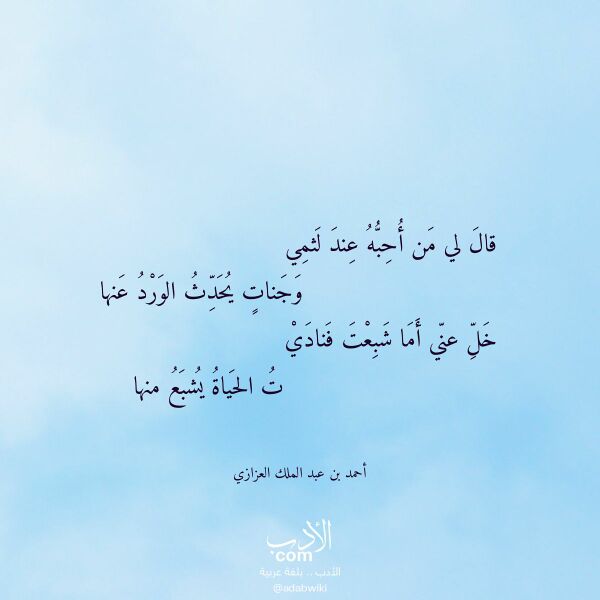 قالَ لي مَن أُحِبُّهُ عِندَ لَثمِي
وَجَناتٍ يُحَدِّثُ الوَرْدُ عَنها
خَلِّ عنّي أَمَا شَبِعْتَ فَنادَيْ
تُ الحَياةُ يُشبَعُ منها
أحمد بن عبد الملك العزازي
الأدب
com
الأدب .. بلغة عربية
@adabwiki